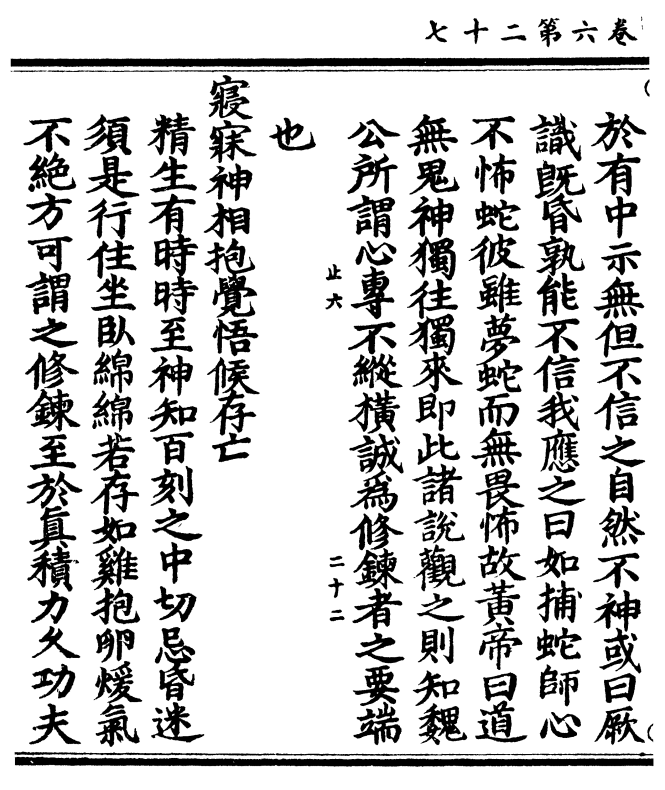 卷六第二十七
於有中示無但不信之自然不神或曰厥
識既昏孰能不信我應之曰如捕蛇師心
不怖蛇彼雖夢蛇而無畏怖故黃帝曰道
無鬼神獨往獨來即此諸說觀之則知魏
公所謂心專不縱橫誠為修鍊者之要端
止六
二十二
也
寢寐神相抱覺悟候存亡
精生有時時至神知百刻之中切忌昏迷
須是行住坐臥綿綿若存如雞抱卵煖氣
不絕方可謂之修鍊至於眞積力久功夫